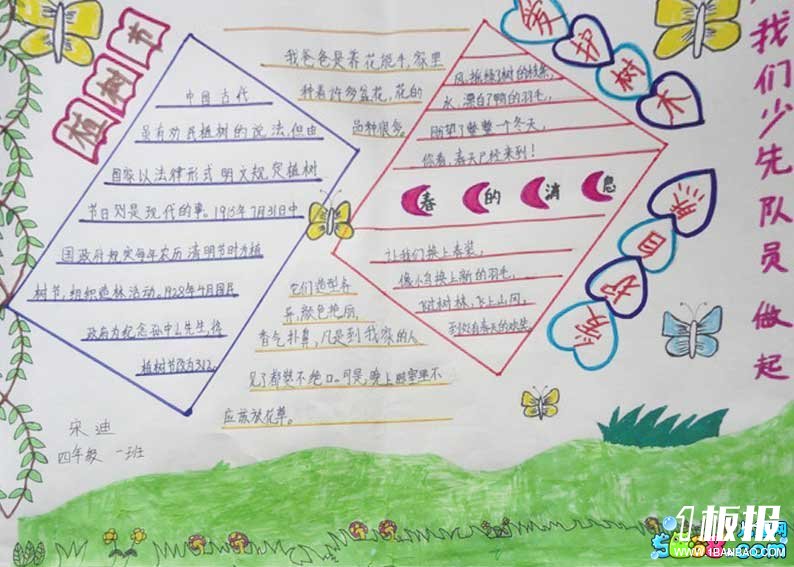 植树节
中国古代
虽有劝民植树的说法,但由
国家以法律形式明文规定植树
节日则是现代的事。1915年7月31日中
国政府规定每年农历清明节时为植
树节,组织造林活动,1928年4月国民
政府为纪念孙中山先生,将
植树节改为3.12。
宋迪
四年级 一班
我爸爸是养花能手,家里
种着许多盆花,花的
品种很多。
它们造型各
异,颜色艳丽,
香气扑鼻,凡是到我家的人
见了都赞不绝口。可是,晚上卧室里不
应该放花草。
风,摇绿了树的枝条,
水,漂白了鸭的羽毛,
盼望了整整一个冬天,
你看,春天已经来到!
春的消息
让我们换上春装,
像小鸟换上新的羽毛,
飞过树林,飞上山冈,
到处有春天的欢笑。
爱护树木
爱护自
我们少先队员做起
1板报
WWW.1BANBAO.COM